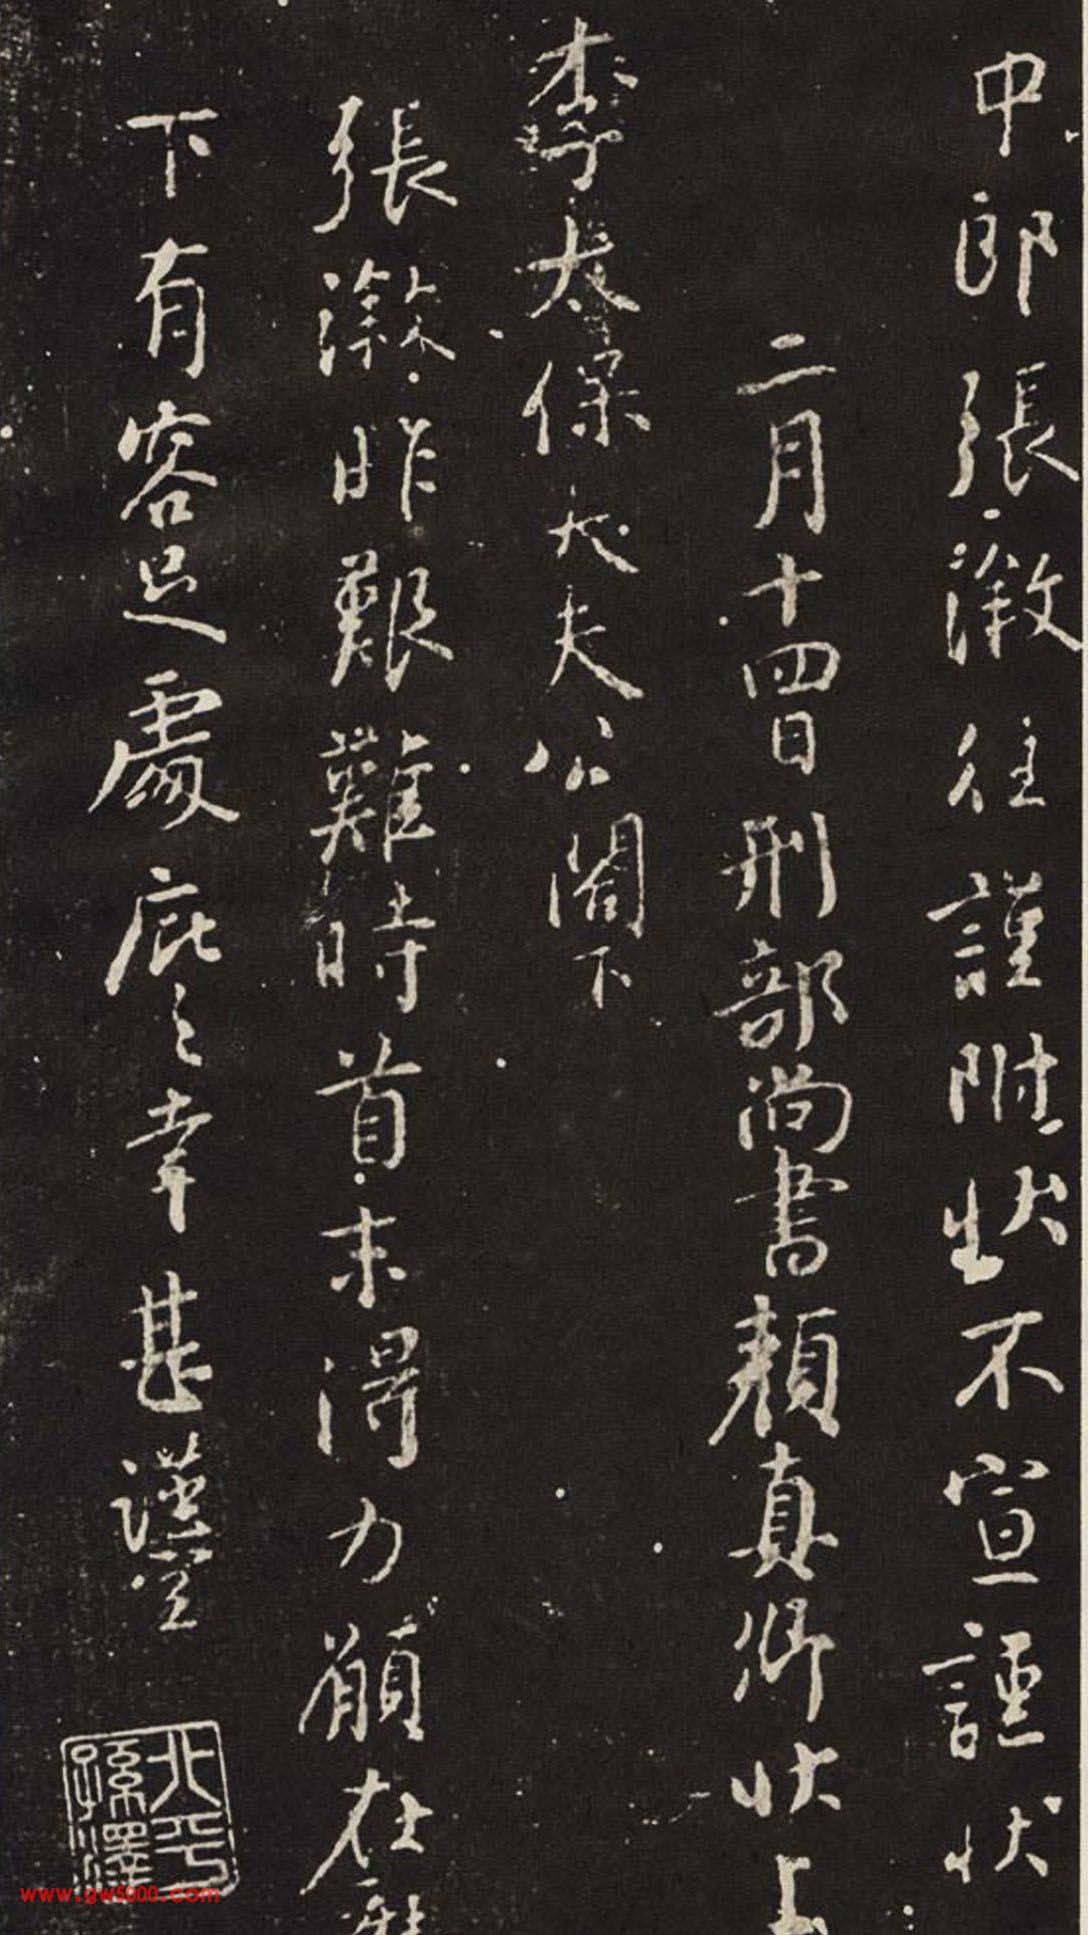 中郎張澂往謹附狀不宣謹狀
二月十四日刑部尚書顏真卿狀上
李太保大夫公閣下
張澂昨艱難時首末得力願在麾
下有容足處庇之幸甚謹空
北平
孫澤
www.gw5000.com